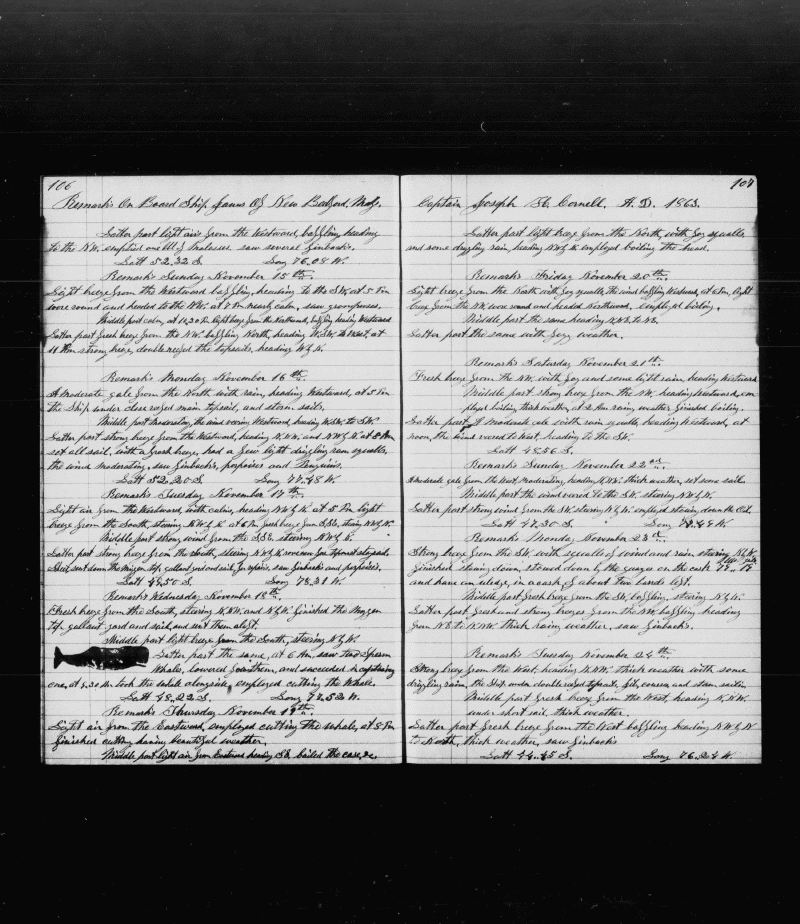 106
Remarks On Board Ship Janus Of New Bedford, Mass.
Latter part light air from the Westward, baffling, heading
to the NW. emptied one bbl of molasses. saw several finbacks.
Latt 52.32 S. Long 76.08 W.
Remarks Sunday November 15th.
Light breeze from the Westward baffling, heading to the SW, at 5 Pm
wore round and headed to the NW. at 7 Pm nearly calm, saw grampuses.
Middle part calm, at 10,30 Pm light breeze from the Northward, baffling heading Westward
Latter part fresh breeze from the NW. baffling North, heading W.SW. to West, at
11 Am strong breeze, double reefed the topsails, heading W by N.
Remarks Monday November 16th.
A Moderate gale from the North with rain, heading Westward, at 5 Pm
the Ship under close reefed main topsail, and storm sails.
Middle part Moderating, the wind veering Westward, heading W.SW. to SW.
Latter part strong breeze from the Westward, heading N.NW. and NW by N. at 8 Am
set all sail, with a fresh breeze, had a few light drizzling rain squalls,
the wind moderating, saw finbacks, porpoises and Penguins.
Latt 52,20 S. Long 77.48 W.
Remarks Tuesday November 17th.
Light air from the Westward, with calms, heading NW by N. at 5 Pm light
breeze from the South, steering NW by N. at 6 Pm fresh breeze from S.SE. steering NW by N.
Middle part strong wind from the S.SE. steering NW by N.
Latter part strong breeze from the South, steering NW by N.
sent down the Mizzen top gallant yard and sail, for repairs, saw finbacks and porpoises.
Latt 49.50 S. Long 78.31 W.
Remarks Wednesday November 18th.
Fresh breeze from the South, steering N.NW. and N by W. finished the Mizzen
top gallant yard and sail, and sent them aloft.
Middle part light breeze from the South, steering N by W.
Latter part the same, at 6 Am, saw two Sperm
Whales, lowered for them, and succeeded in capturing
one, at 9.30 Am took the whale alongside, employed cutting the Whale.
Latt 45.22 S. Long 78.52 W.
Remarks Thursday November 19th.
Light air from the Eastward, employed cutting the whale, at 8 Pm
finished cutting having beautiful weather.
Middle part light air from Eastward heading SE. bailed the case, &c
107
Captain Joseph H. Cornell. A.D. 1863.
Latter part light breeze from the North, with fog squalls
and some drizzling rain, heading W by N. employed boiling the head.
Remarks Friday November 20th.
Light breeze from the North with fog squalls, the wind baffling Westward, at 6 Pm. light
breeze from the NW. wore round and headed Northward, employed boiling.
Middle part the same heading N.NE. to NE.
Latter part the same with fog weather.
Remarks Saturday November 21st.
Fresh breeze from the NW. with fog and some light rain, heading Westward
Middle part strong breeze from the NW. heading Westward, em-
ployed boiling, thick weather, at 3 Am rainy weather, finished boiling.
Latter part A moderate gale with rain squalls, heading Westward, at
noon, the wind veered to West, heading to the SW.
Latt 48.56 S.
Remarks Sunday November 22nd.
A moderate gale from the West, moderating, heading N.NW. thick weather, set some sail.
Middle part the wind veered to the SW, steering NW by N.
Latter part strong wind from the SW. steering N by W. employed stowing down the Oil.
Latt 47.30 S. Long 78.49 W.
Remarks Monday November 23rd.
Strong breeze from the SW. with squalls of wind and rain steering N by W.
finished stowing down, stowed down by the gauges on the cask
and have on deck, in a cask of about two barrels left.
Middle part fresh breeze from the SW, baffling, steering N by W.
Latter part fresh and strong breezes from the NW. baffling heading
from NE to N.NW. thick rainy weather, saw finbacks.
Remarks Tuesday November 24th.
Strong breeze from the West, heading N.NW. thick weather with some
drizzling rain, the Ship under double reefed topsails, jib, courses and storm sails.
Middle part fresh breeze from the West, heading N.NW.
under short sail, thick weather.
Latter part fresh breeze from the West baffling heading NW by N
to North, thick weather, saw finbacks
Latt 44.45 S. Long 76.24 W.